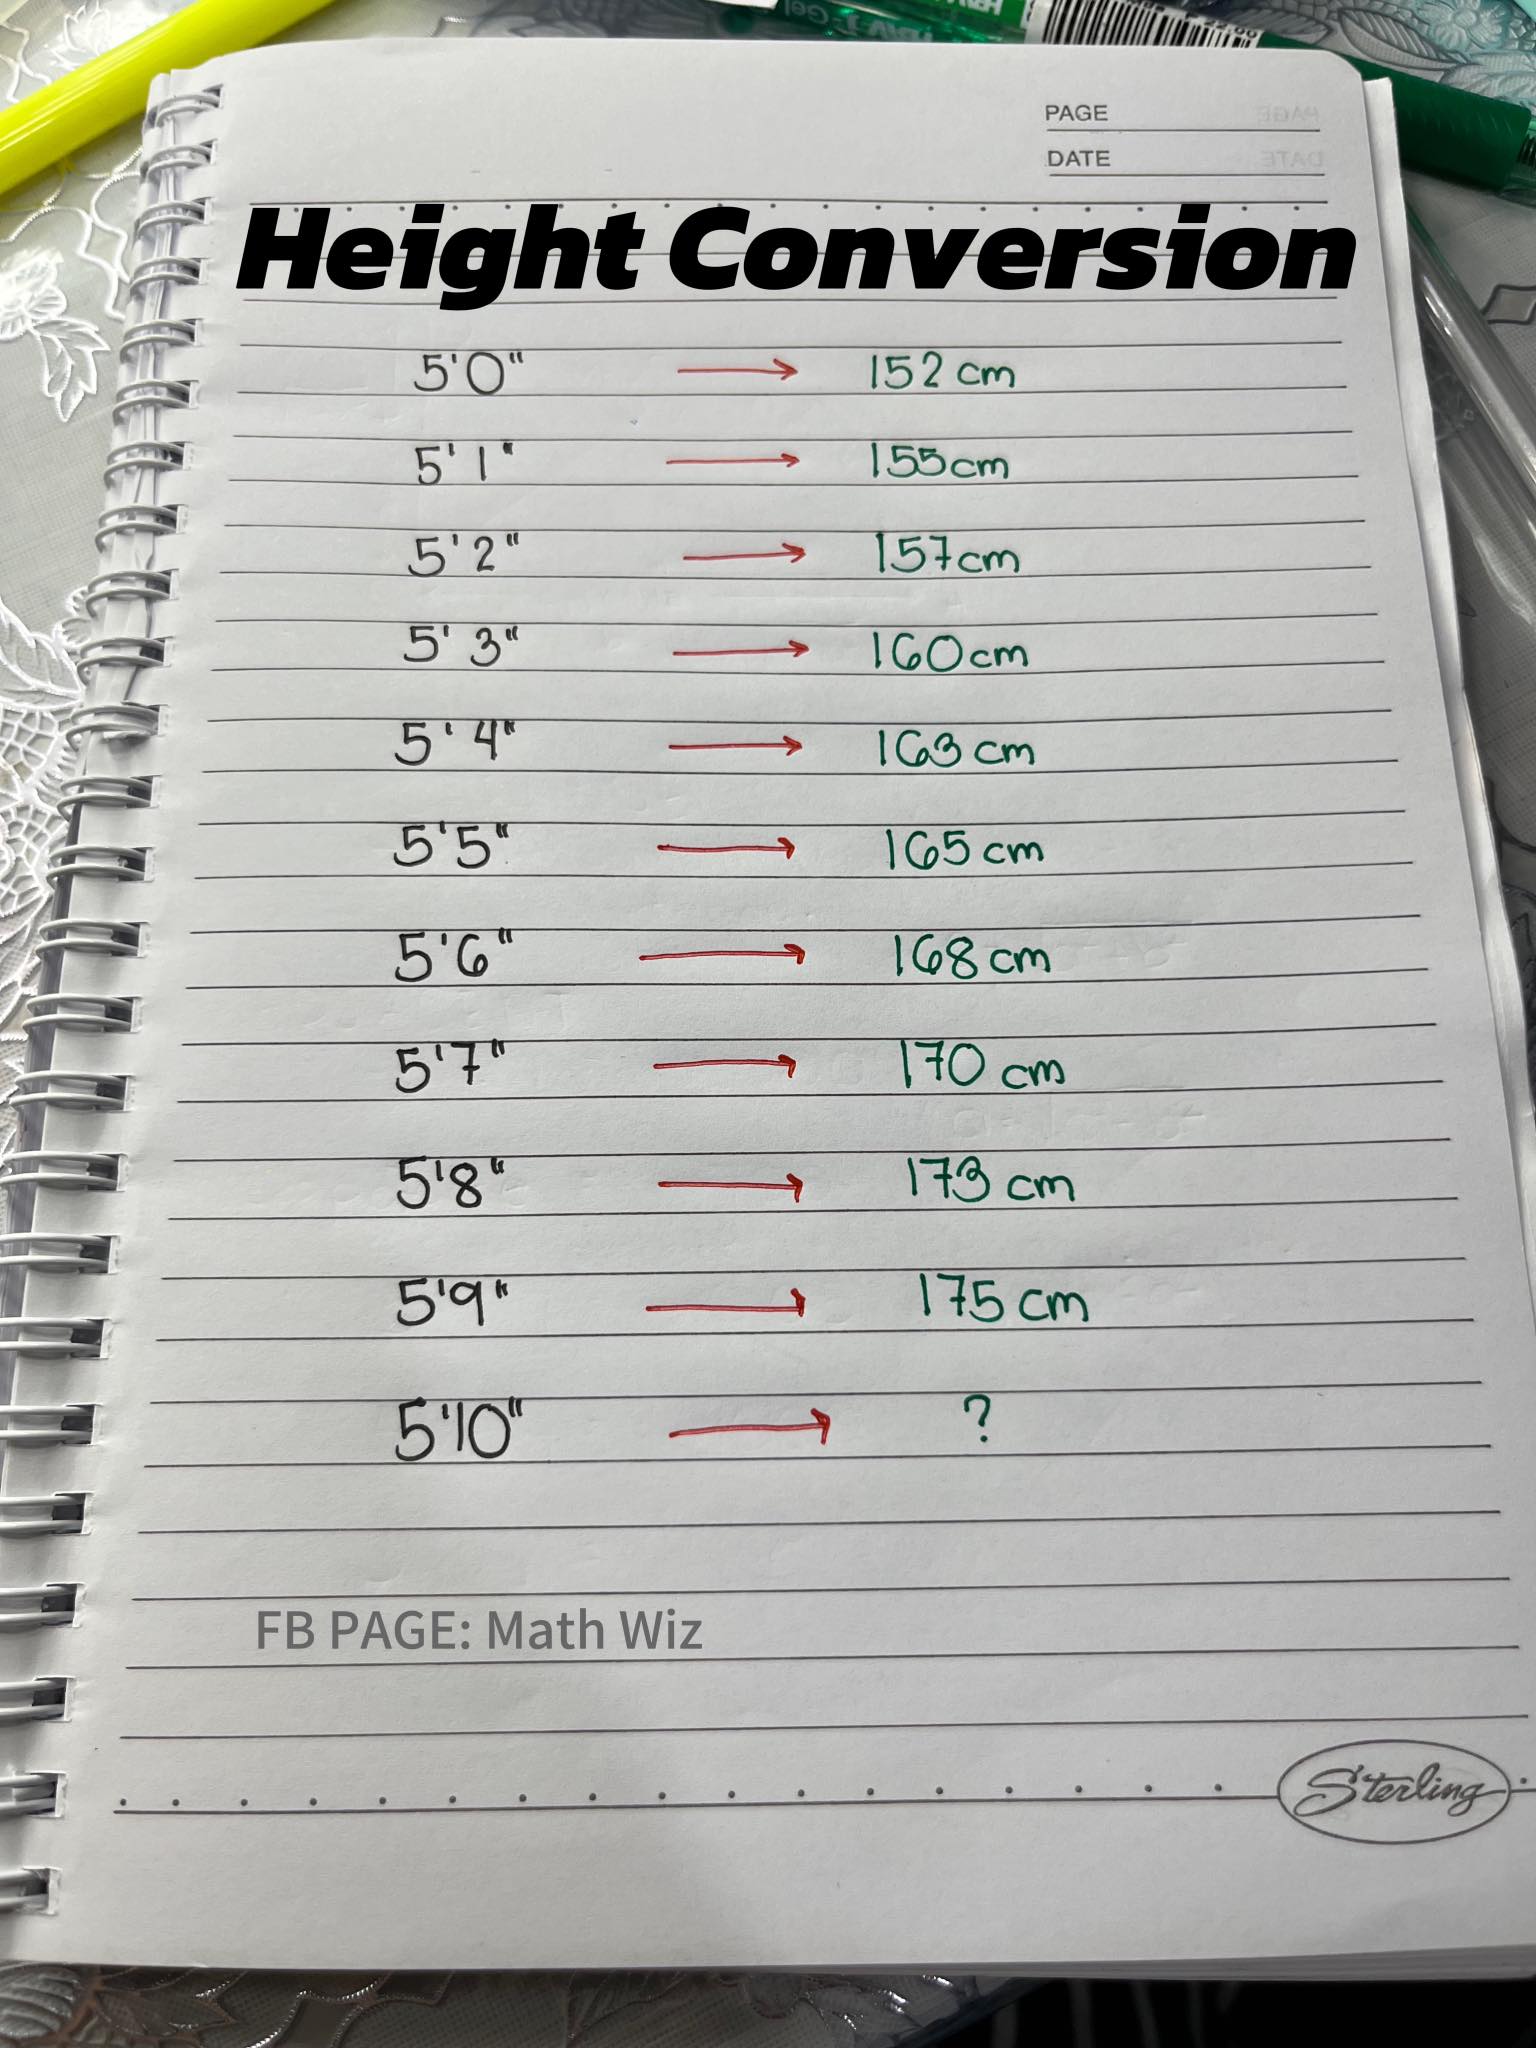 PAGE
DATE
Height Conversion
5'0" → 152 cm
5'1" → 155cm
5'2" → 157cm
5'3" → 160cm
5'4" → 163 cm
5'5" → 165 cm
5'6" → 168 cm
5'7" → 170 cm
5'8" → 173 cm
5'9" → 175 cm
5'10" → ?
FB PAGE: Math Wiz
Sterling